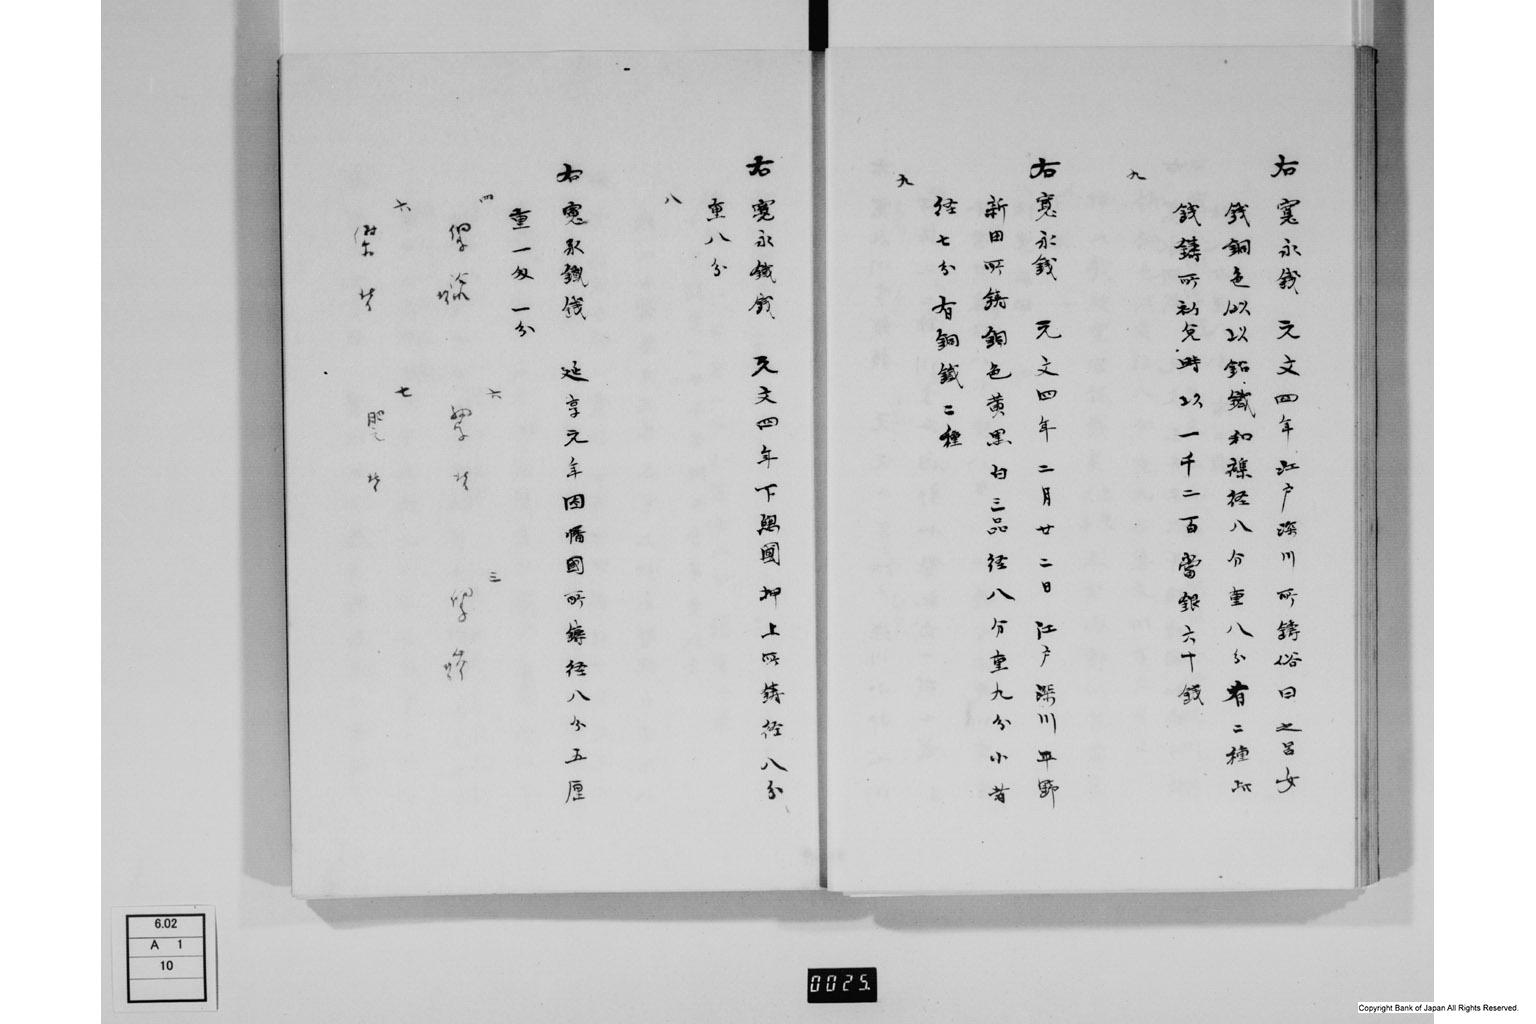 右寛永銭　元文四年江戸深川所鋳俗曰之呂女
銭銅色以鉛鐡和雜径八分重八分有二種此
銭鋳所初免時以一千二百當銀六十銭
九
右寛永銭　元文四年二月廿二日江戸深川平野
新田所鋳銅色黄黒白三品径八分重九分小者
径七分有銅鐡二種
九
右寛永鐡銭　元文四年下総國押上所鋳径八分
重八分
八
右寛永鐡銭　延享元年因幡國所鋳径八分五厘
重一匁一分
四　六　三
六　七
6.02
A 1
10
0025.
Copyright Bank of Japan All Rights Reserved.